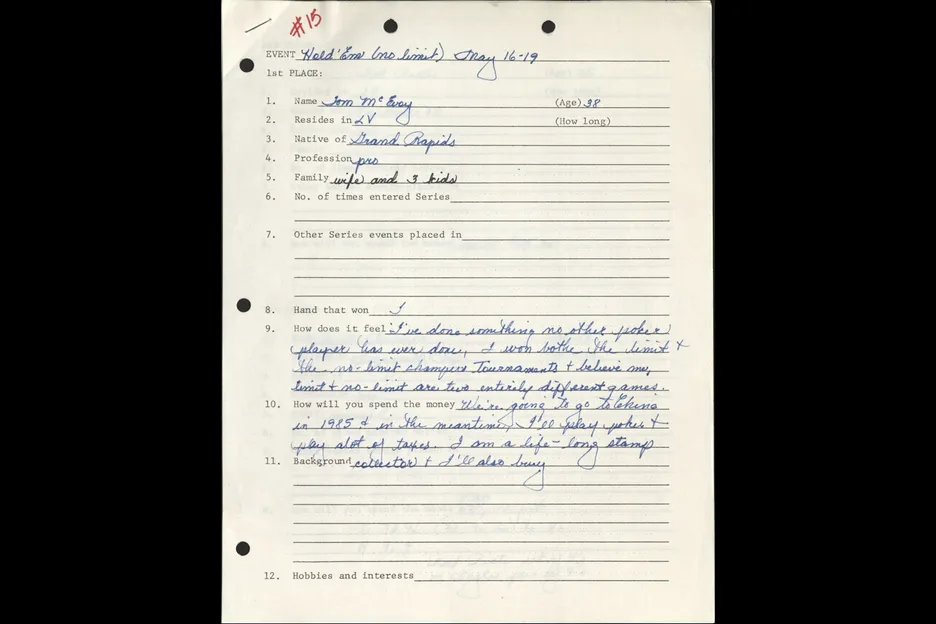 #15
EVENT Hold'Em (no limit) May 16-19
1st PLACE:
1. Name Tom McEvoy (Age) 38
2. Resides in LV (How long)
3. Native of Grand Rapids
4. Profession pro
5. Family wife and 3 kids
6. No. of times entered Series
7. Other Series events placed in
8. Hand that won
9. How does it feel I've done something no other poker
player has ever done, I won bothe the limit +
the no-limit champers Tournaments + believe me,
limit + no-limit are two entirely different games.
10. How will you spend the money We're going to go to
in 1985 & in the meantime, I'll play poker +
pay alot of taxes. I am a life-long stamp
11. Background collector + I'll also buy
12. Hobbies and interests